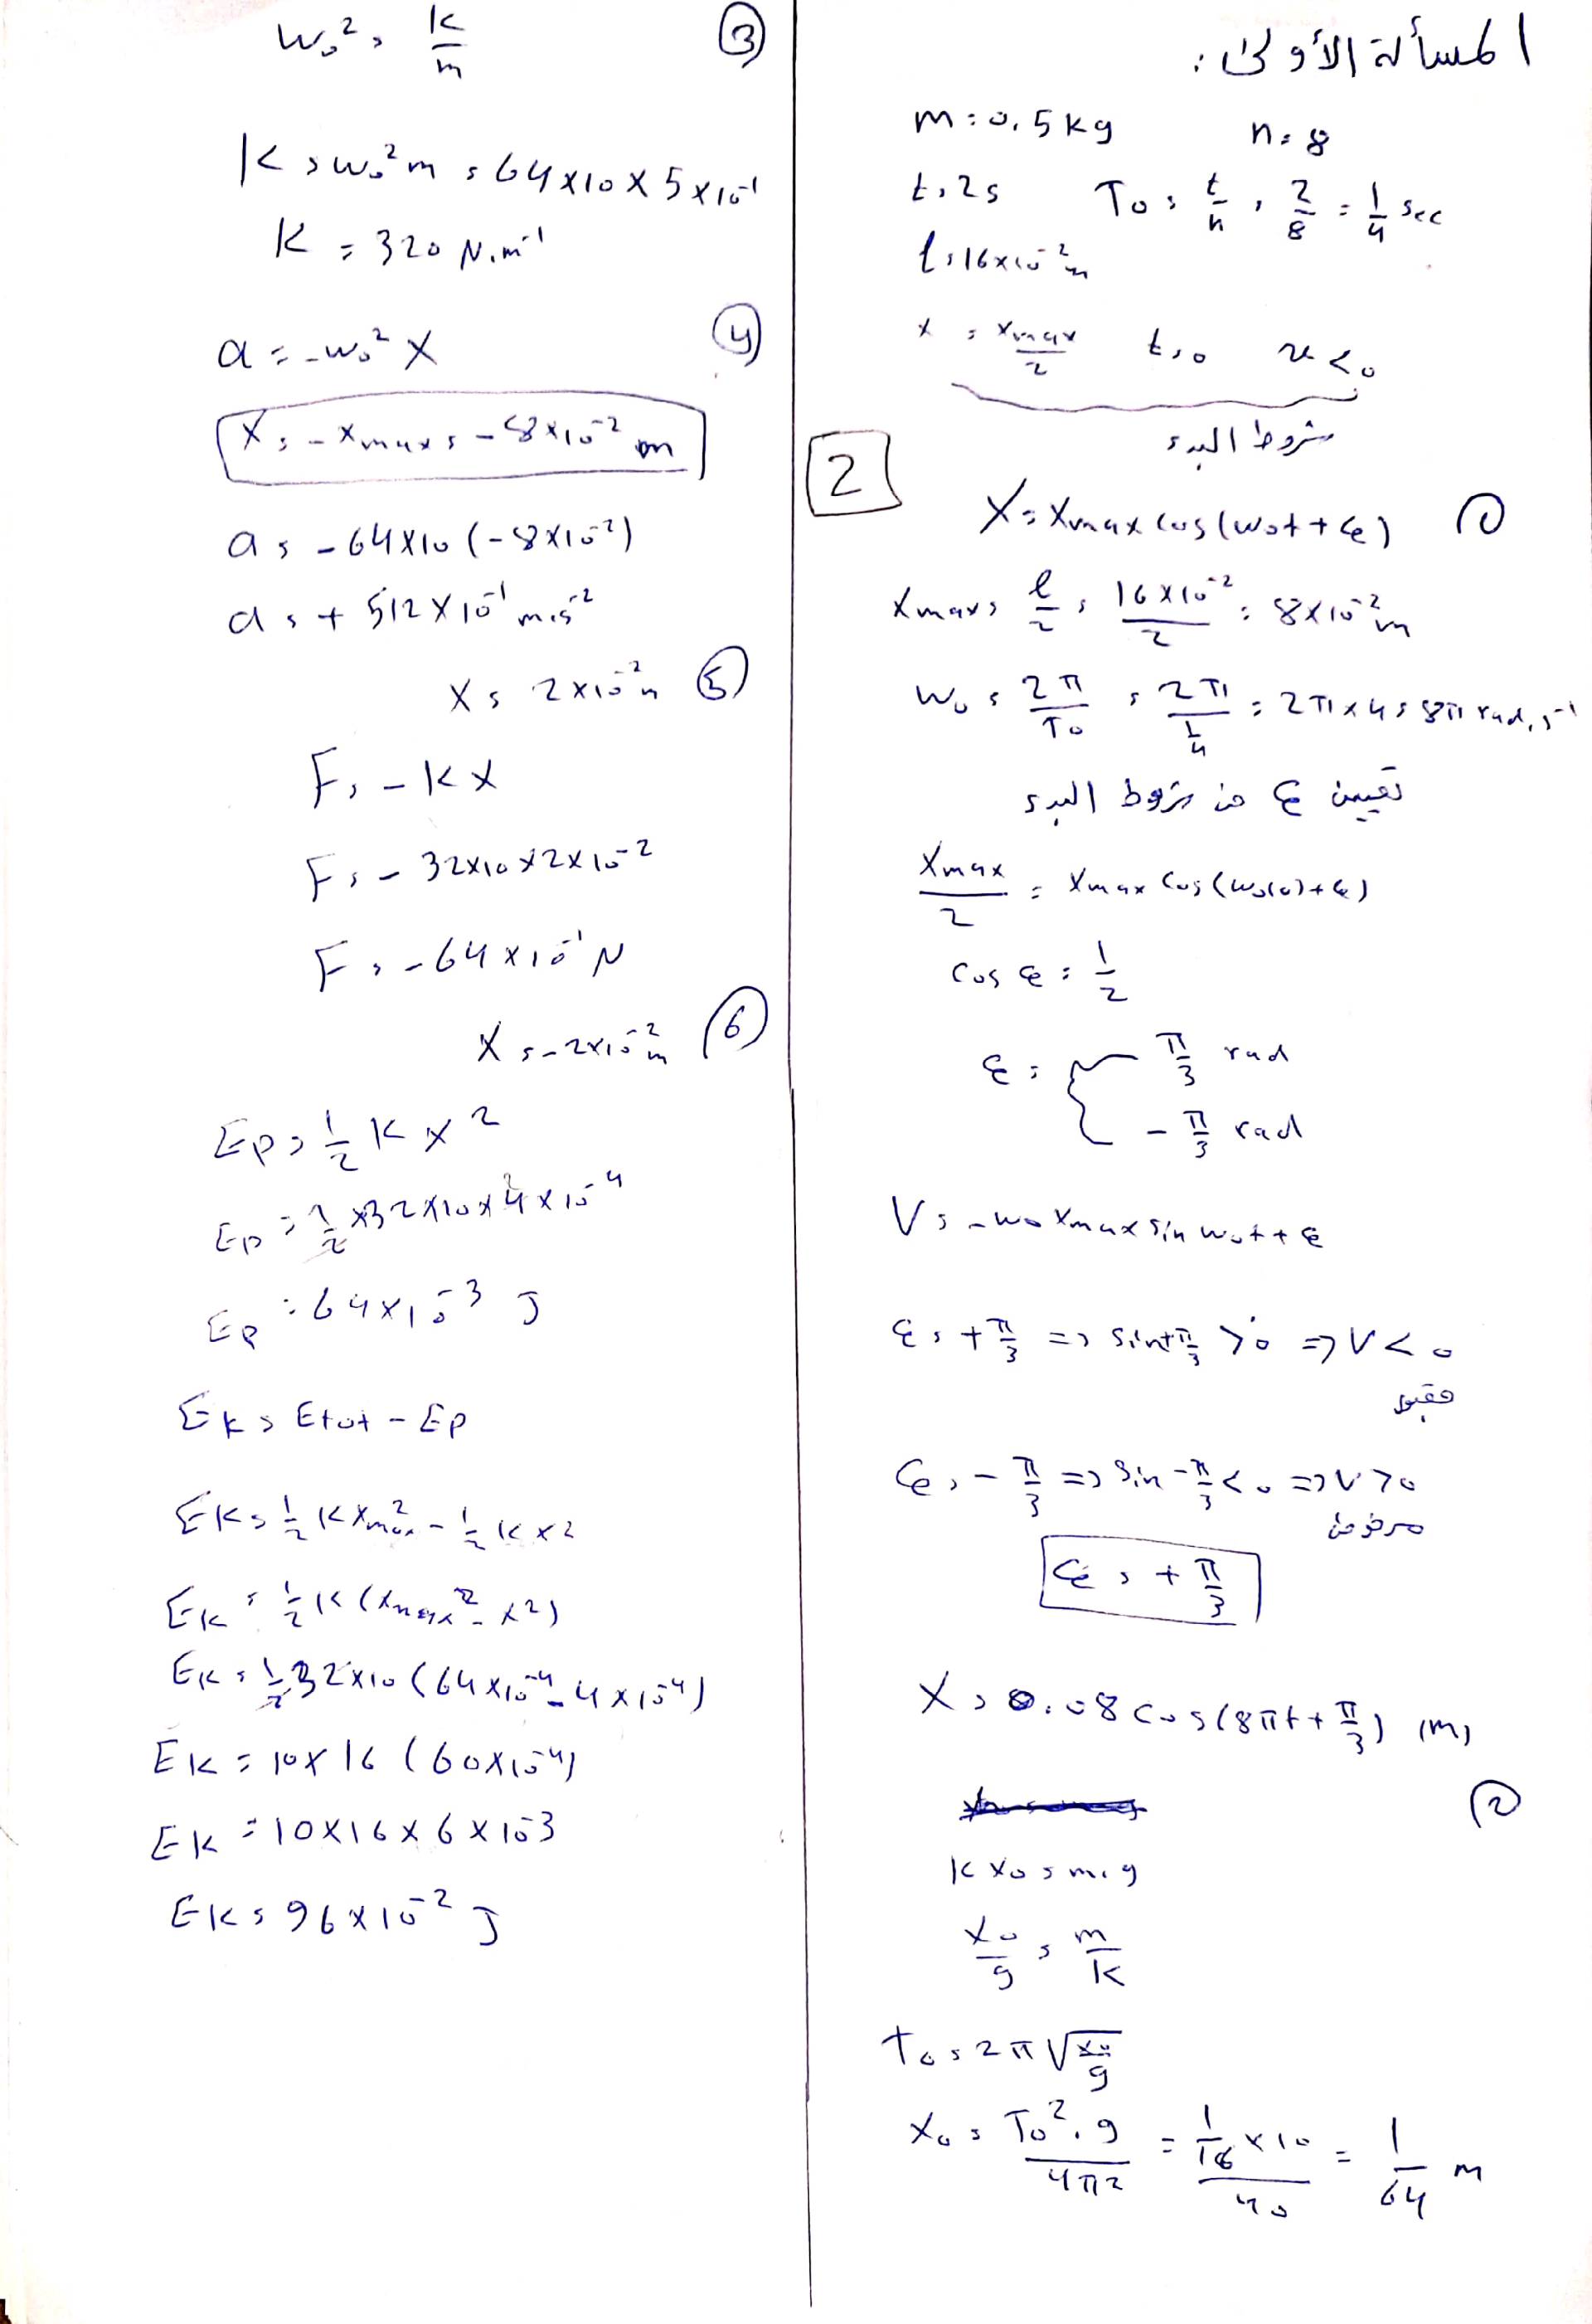 المسألة الأولى :
m = 0,5 kg n = 8
t = 2 s T₀ = t/n = 2/8 = 1/4 sec
ℓ = 16×10⁻² m
x = Xmax/2 t = 0 v < 0
شروط البدء
2
① X = Xmax cos(ω₀t + φ)
Xmax = ℓ/2 = 16×10⁻²/2 = 8×10⁻² m
ω₀ = 2π/T₀ = 2π/(1/4) = 2π×4 = 8π rad.s⁻¹
تعيين φ من شروط البدء
Xmax/2 = Xmax cos(ω₀(0)+φ)
cos φ = 1/2
φ = { π/3 rad
- π/3 rad
V = -ω₀ Xmax sin ω₀t + φ
φ = +π/3 => sin+π/3 > 0 => V < 0
مقبول
φ = -π/3 => sin -π/3 < 0 => V > 0
مرفوض
φ = + π/3
X = 0.08 cos(8πt + π/3) (m)
②
K X₀ = m.g
X₀/g = m/K
T₀ = 2π √(X₀/g)
X₀ = T₀².g/4π² = (1/16 × 10)/40 = 1/64 m
③ ω₀² = K/m
K = ω₀² m = 64×10×5×10⁻¹
K = 320 N.m⁻¹
④
a = -ω₀² X
X = -Xmax = -8×10⁻² m
a = -64×10 (-8×10⁻²)
a = + 512×10⁻¹ m.s⁻²
⑤ X = 2×10⁻² m
F = -K X
F = -32×10×2×10⁻²
F = -64×10⁻¹ N
⑥ X = -2×10⁻² m
Ep = 1/2 K X²
Ep = 1/2 ×32×10×4×10⁻⁴
Ep = 64×10⁻³ J
Ek = Etot - Ep
Ek = 1/2 K Xmax² - 1/2 K X²
Ek = 1/2 K (Xmax² - X²)
Ek = 1/2 32×10 (64×10⁻⁴ - 4×10⁻⁴)
Ek = 10×16 (60×10⁻⁴)
Ek = 10×16×6×10⁻³
Ek = 96×10⁻² J